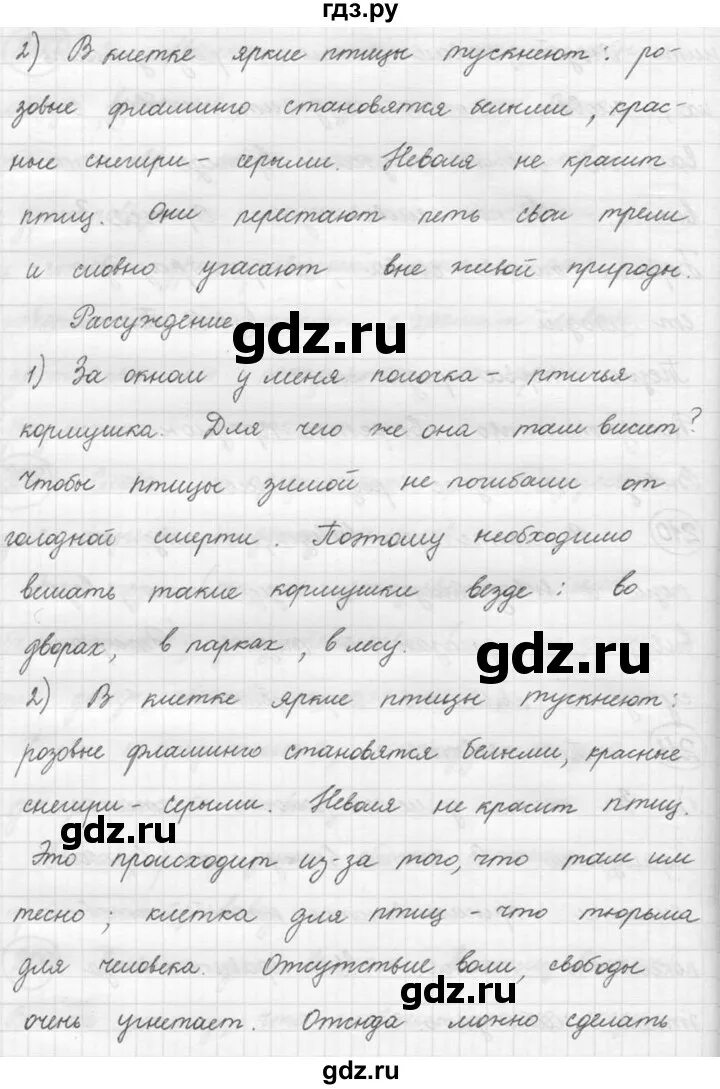 гдз.ру
2) В клетке яркие птицы тускнеют: ро-
зовые фламинго становятся белыми, крас-
ные снегири – серыми. Неволя не красит
птиц. Они перестают петь свои трели
и словно угасают вне живой природы.
Рассуждение
gdz.ru
1) За окном у меня полочка – птичья
кормушка. Для чего же она там висит?
Чтобы птицы зимой не погибали от
голодной смерти. Поэтому необходимо
вешать такие кормушки везде: во
дворах, в парках, в лесу.
gdz.ru
2) В клетке яркие птицы тускнеют:
розовые фламинго становятся белыми, красные
снегири – серыми. Неволя не красит птиц.
gdz.ru
Это происходит из-за того, что там им
тесно; клетка для птиц – что тюрьма
для человека. Отсутствие воли, свободы
gdz.ru
очень угнетает. Отсюда можно сделать